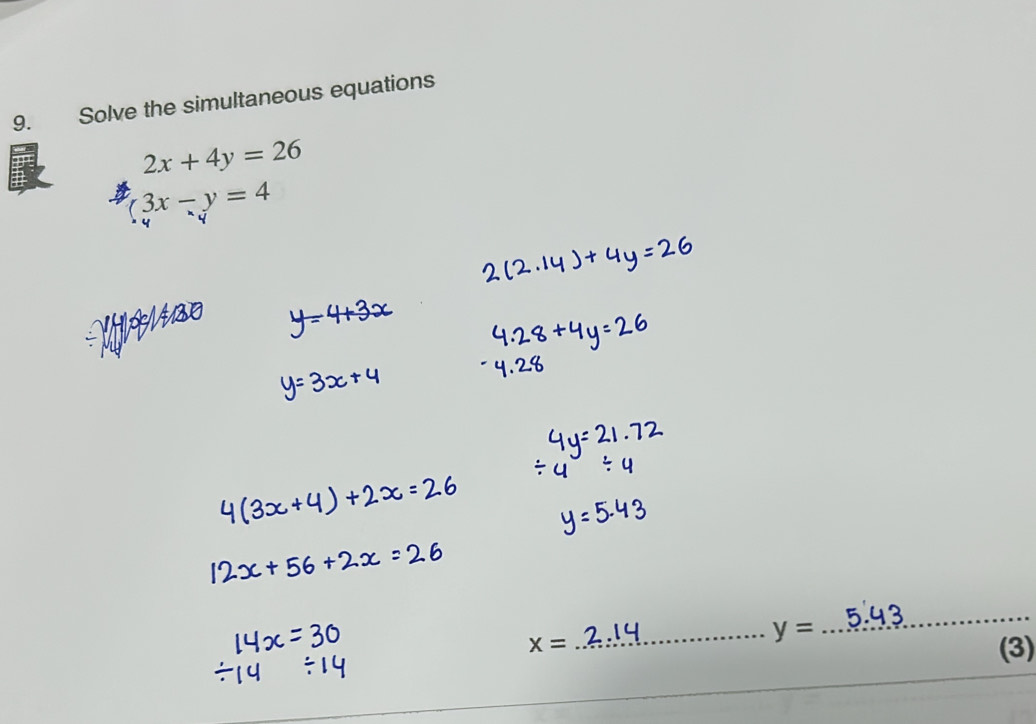 9. Solve the simultaneous equations
2x + 4y = 26
3x - y = 4
×4 ×4
y=4+3x
y=3x+4
4(3x+4)+2x=26
12x+56+2x=26
14x=30
÷14 ÷14
2(2.14)+4y=26
4.28+4y=26
-4.28
4y=21.72
÷4 ÷4
y=5.43
x = 2.14 y = 5.43
(3)